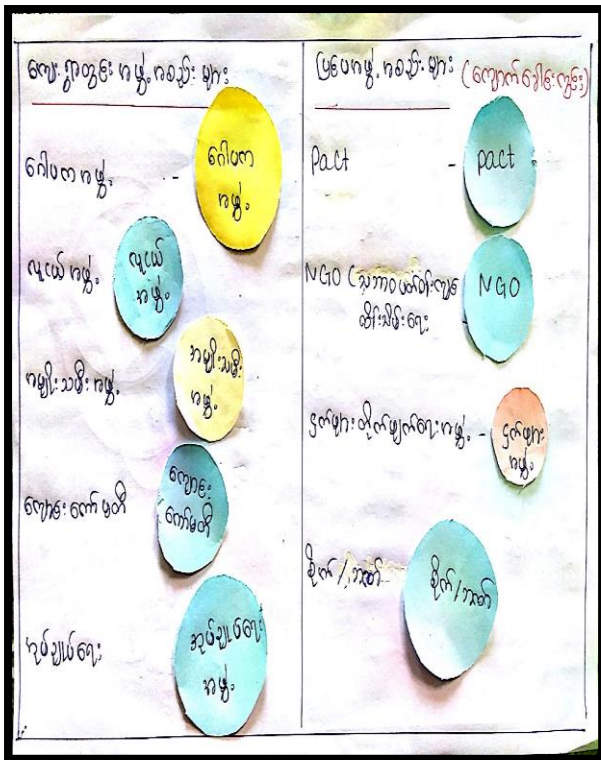 ကျေးရွာတွင်း အဖွဲ့အစည်းများ
ဂေါပကအဖွဲ့ -
ဂေါပက
အဖွဲ့
လူငယ်အဖွဲ့
လူငယ်
အဖွဲ့
အမျိုးသမီးအဖွဲ့
အမျိုးသမီး
အဖွဲ့
ကျောင်းကော်မတီ
ကျောင်း
ကော်မတီ
အုပ်ချုပ်ရေး
အုပ်ချုပ်ရေး
အဖွဲ့
ပြင်ပအဖွဲ့အစည်းများ (ကျောက်ခေါင်းကျွန်း)
Pact -
pact
NGO (သဘာဝပတ်ဝန်းကျင်
ထိန်းသိမ်းရေး
NGO
ငှက်ဖျားတိုက်ဖျက်ရေးအဖွဲ့ -
ငှက်ဖျား
အဖွဲ့
စိုက်/ဘဏ်
စိုက်/ဘဏ်